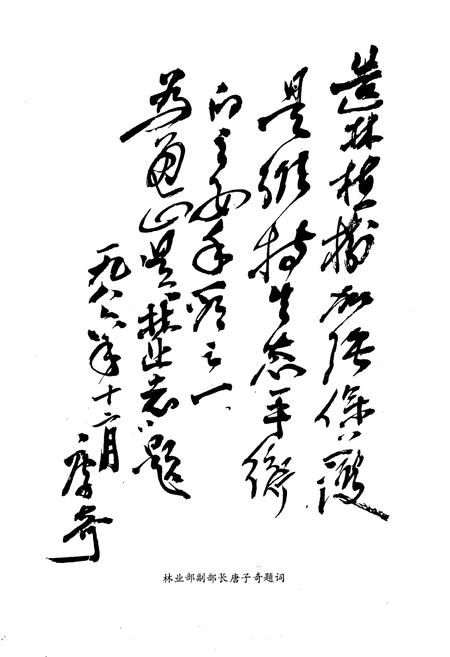 造林植树加强保护
是维持生态平衡
的主要手段之一
为山县林业志题
一九八六年十二月
唐子奇
林业部副部长唐子奇题词